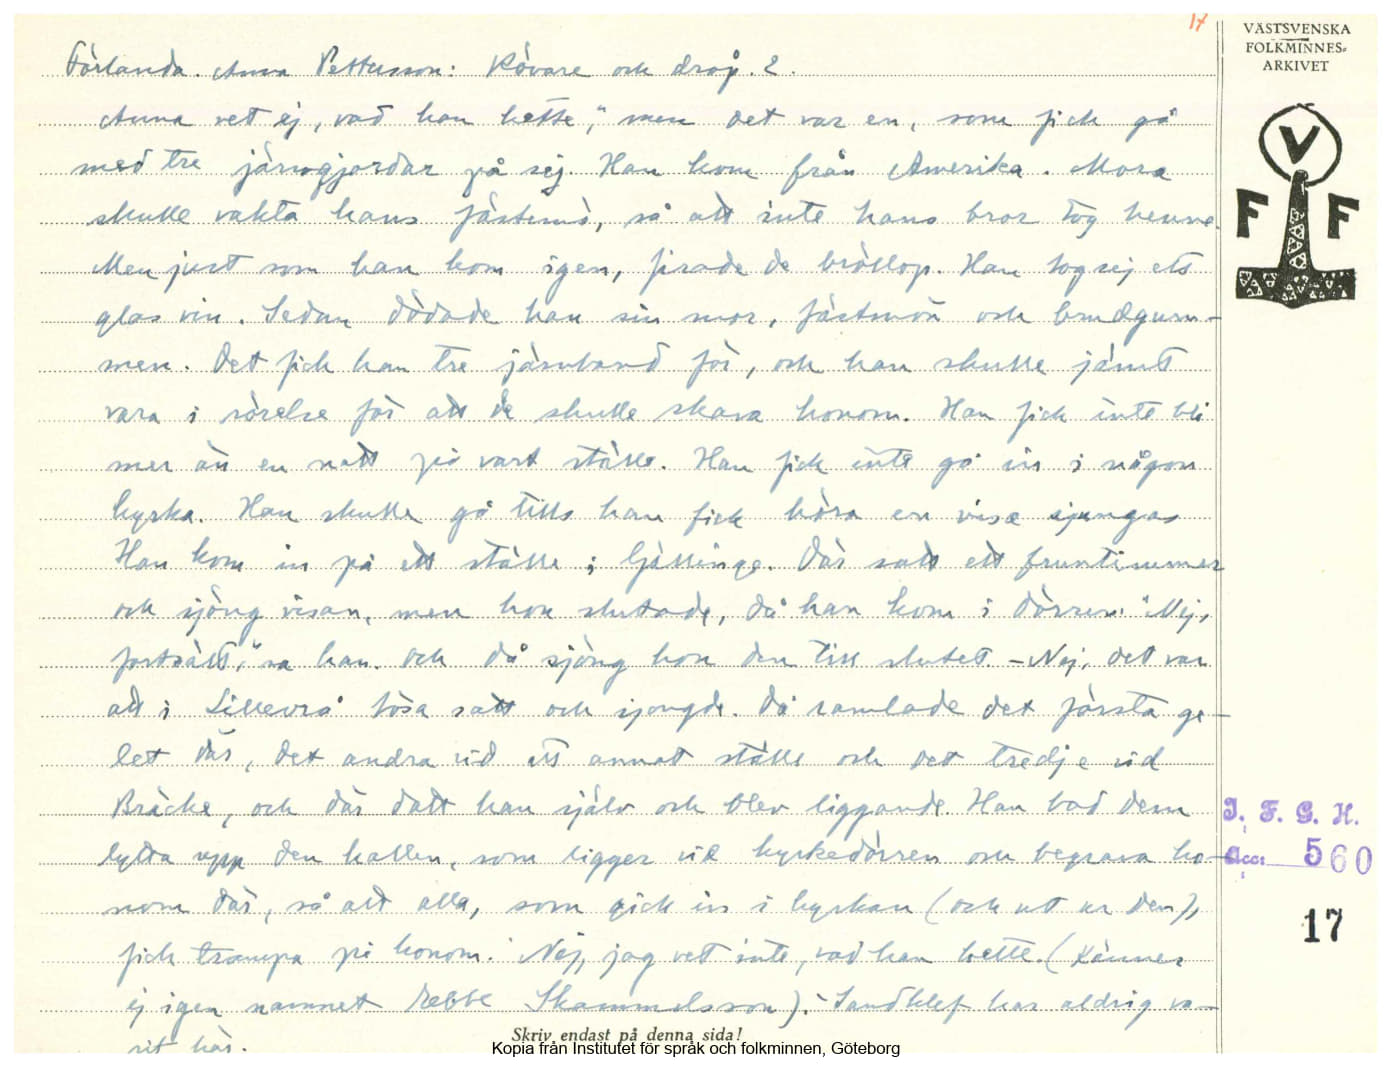 17
VÄSTSVENSKA
FOLKMINNES-
ARKIVET
V
F F
Förlanda. Anna Pettersson: Rövare och dråp. 2.
Anna vet ej, vad han hette, "men det var en, som fick gå
med tre järngjordar på sej. Han kom från Amerika. Mora
skulle vakta hans fästemö, så att inte hans bror tog henne.
Men just som han kom igen, firade de bröllop. Han tog sej ett
glas vin. Sedan dödade han sin mor, fästmön och brudgum-
men. Det fick han tre järnband för, och han skulle jämt
vara i rörelse för att de skulle skava honom. Han fick inte bli
mer än en natt på vart ställe. Han fick inte gå in i någon
kyrka. Han skulle gå tills han fick höra en visa sjungas
Han kom in på ett ställe i Gällinge. Där satt ett fruntimmer
och sjöng visan, men hon slutade, då han kom i dörren. "Nej,
fortsätt," sa han. Och då sjöng hon den till slutet. – Nej, det var
att i Lillevrå tösa satt och sjongde. Då ramlade det första ge-
let där, det andra vid ett annat ställe och det tredje vid
Bräcke, och där datt han själv och blev liggande. Han bad dem
lyfta upp den hallen, som ligger vid kyrkedörren och begrava ho-
nom där, så att alla, som gick in i kyrkan (och ut ur den),
fick trampa på honom. Nej, jag vet inte, vad han hette. (Känner
ej igen namnet Ebbe Skammelsson). Sandklef har aldrig va-
rit här.
I. F. G. H.
Acc: 560
17
Skriv endast på denna sida!
Kopia från Institutet för språk och folkminnen, Göteborg